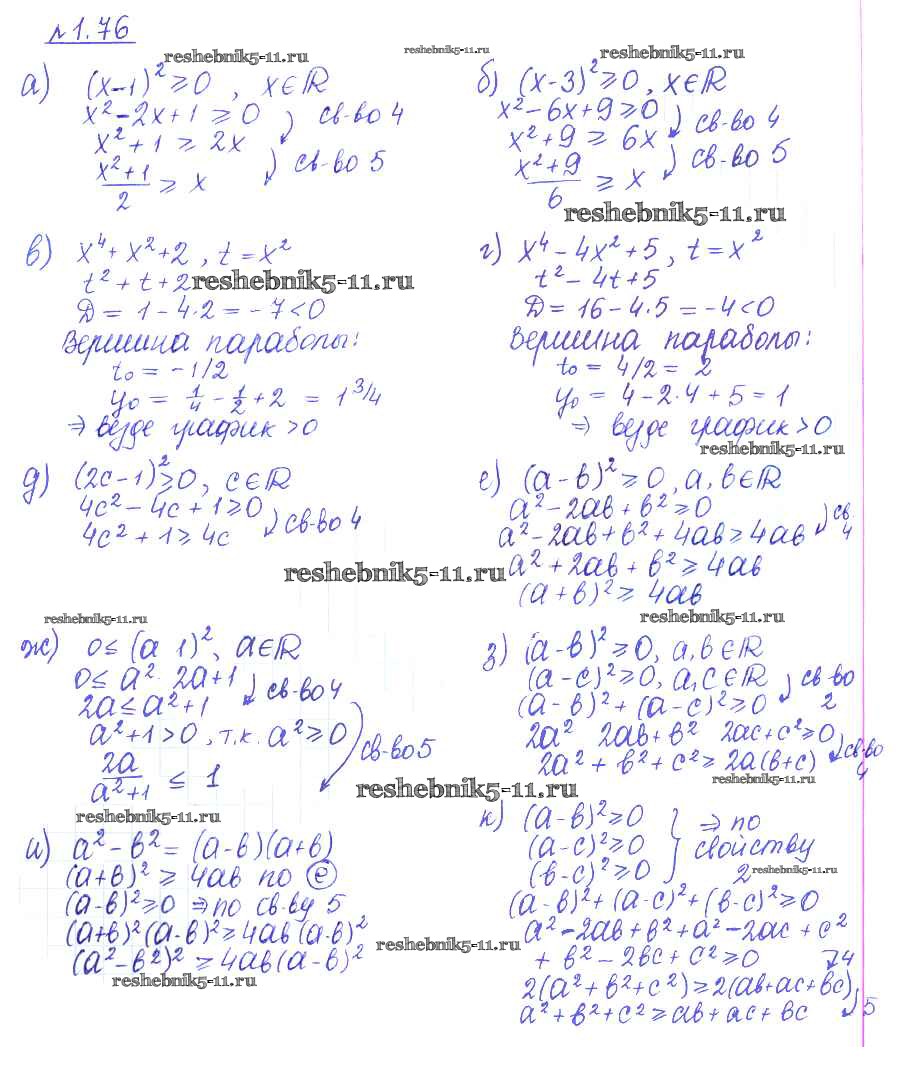 №1.76
reshebnik5-11.ru
reshebnik5-11.ru
reshebnik5-11.ru
а) (x-1)² ≥ 0 , x∈ℝ
x² - 2x + 1 ≥ 0
св-во 4
x² + 1 ≥ 2x
св-во 5
(x²+1)/2 ≥ x
б) (x-3)² ≥ 0 , x∈ℝ
x² - 6x + 9 ≥ 0
св-во 4
x² + 9 ≥ 6x
св-во 5
(x²+9)/6 ≥ x
reshebnik5-11.ru
в) x⁴ + x² + 2 , t = x²
t² + t + 2
reshebnik5-11.ru
Д = 1 - 4·2 = -7 < 0
Вершина параболы:
t₀ = -1/2
y₀ = 1/4 - 1/2 + 2 = 1 3/4
⇒ везде график > 0
г) x⁴ - 4x² + 5 , t = x²
t² - 4t + 5
Д = 16 - 4·5 = -4 < 0
Вершина параболы:
t₀ = 4/2 = 2
y₀ = 4 - 2·4 + 5 = 1
⇒ везде график > 0
reshebnik5-11.ru
д) (2c-1)² ≥ 0, c∈ℝ
4c² - 4c + 1 ≥ 0
св-во 4
4c² + 1 ≥ 4c
reshebnik5-11.ru
е) (a-b)² ≥ 0 , a, b∈ℝ
a² - 2ab + b² ≥ 0
св 4
a² - 2ab + b² + 4ab ≥ 4ab
a² + 2ab + b² ≥ 4ab
(a + b)² ≥ 4ab
reshebnik5-11.ru
reshebnik5-11.ru
ж) 0 ≤ (a 1)², a∈ℝ
0 ≤ a² 2a + 1
св-во 4
2a ≤ a² + 1
a² + 1 > 0 , т.к. a² ≥ 0
св-во 5
2a/(a²+1) ≤ 1
reshebnik5-11.ru
reshebnik5-11.ru
з) (a-b)² ≥ 0, a, b∈ℝ
(a-c)² ≥ 0, a, c∈ℝ
св-во 2
(a-b)² + (a-c)² ≥ 0
2a² 2ab + b² 2ac + c² ≥ 0
св-во 4
2a² + b² + c² ≥ 2a(b+c)
reshebnik5-11.ru
и) a² - b² = (a-b)(a+b)
(a+b)² ≥ 4ab по е
(a-b)² ≥ 0 ⇒ по св-ву 5
(a+b)²(a-b)² ≥ 4ab(a-b)²
(a²-b²)² ≥ 4ab(a-b)²
reshebnik5-11.ru
reshebnik5-11.ru
к) (a-b)² ≥ 0
(a-c)² ≥ 0
(b-c)² ≥ 0
} ⇒ по
свойству
2
reshebnik5-11.ru
(a-b)² + (a-c)² + (b-c)² ≥ 0
a² - 2ab + b² + a² - 2ac + c²
+ b² - 2bc + c² ≥ 0
4
2(a² + b² + c²) ≥ 2(ab+ac+bc)
5
a² + b² + c² ≥ ab + ac + bc